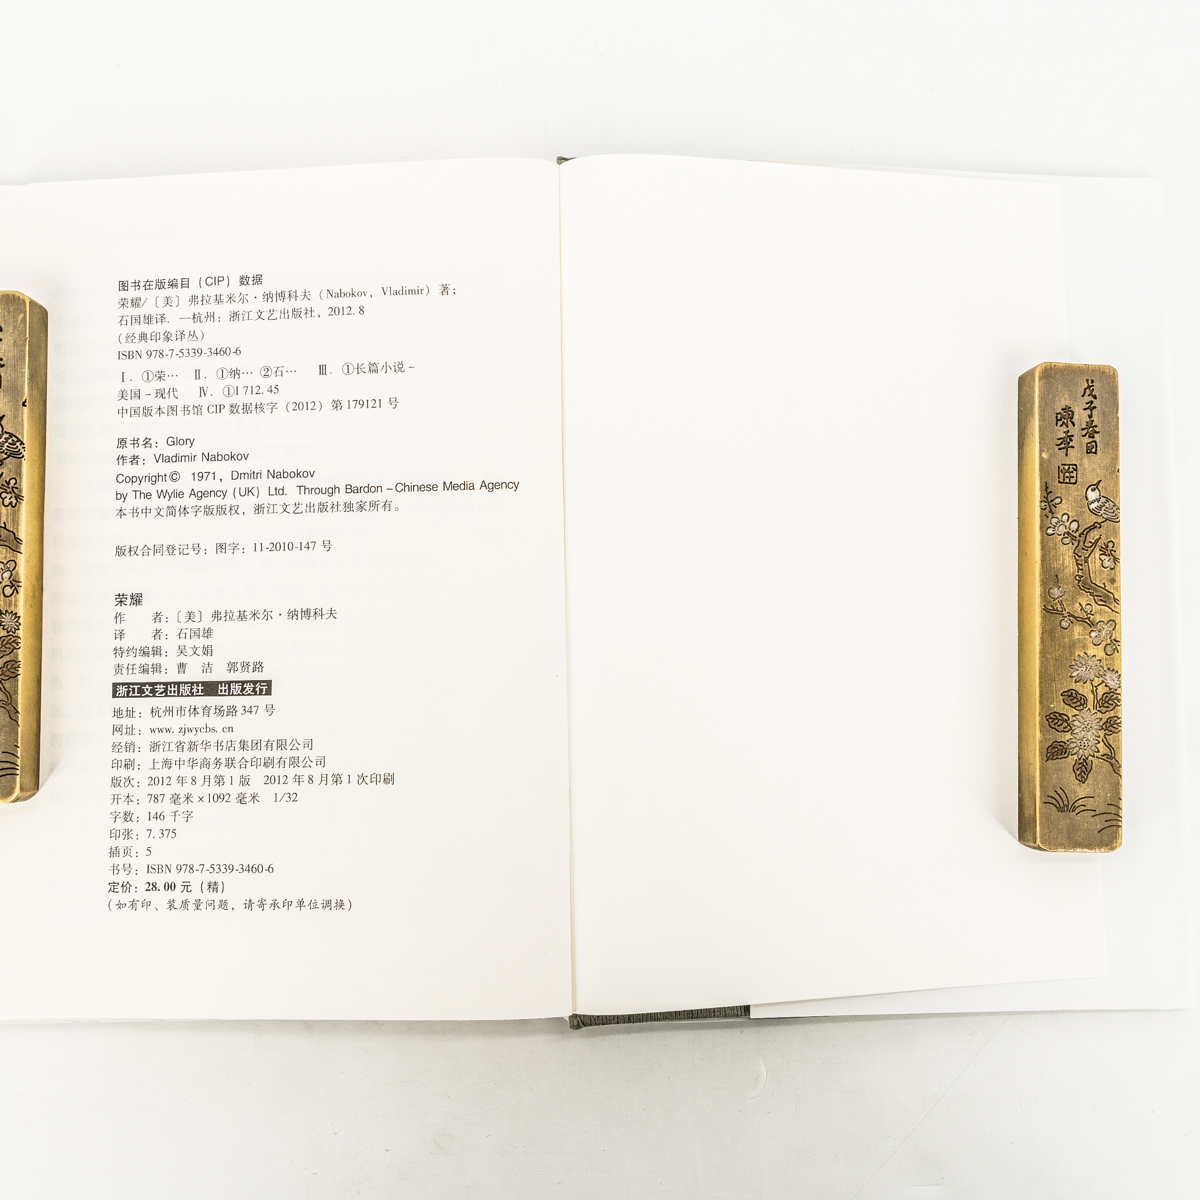 图书在版编目（CIP）数据
荣耀/〔美〕弗拉基米尔·纳博科夫（Nabokov, Vladimir）著；
石国雄译. —杭州：浙江文艺出版社，2012.8
（经典印象译丛）
ISBN 978-7-5339-3460-6
Ⅰ. ①荣… Ⅱ. ①纳… ②石… Ⅲ. ①长篇小说－
美国－现代 Ⅳ. ①I 712.45
中国版本图书馆 CIP 数据核字（2012）第 179121 号
原书名：Glory
作者：Vladimir Nabokov
Copyright© 1971, Dmitri Nabokov
by The Wylie Agency (UK) Ltd. Through Bardon－Chinese Media Agency
本书中文简体字版版权，浙江文艺出版社独家所有。
版权合同登记号：图字：11-2010-147 号
荣耀
作 者：〔美〕弗拉基米尔·纳博科夫
译 者：石国雄
特约编辑：吴文娟
责任编辑：曹 洁 郭贤路
浙江文艺出版社 出版发行
地址：杭州市体育场路 347 号
网址：www.zjwycbs.cn
经销：浙江省新华书店集团有限公司
印刷：上海中华商务联合印刷有限公司
版次：2012 年 8 月第 1 版 2012 年 8 月第 1 次印刷
开本：787 毫米×1092 毫米 1/32
字数：146 千字
印张：7.375
插页：5
书号：ISBN 978-7-5339-3460-6
定价：28.00 元（精）
（如有印、装质量问题，请寄承印单位调换）
戊子春日
陳年